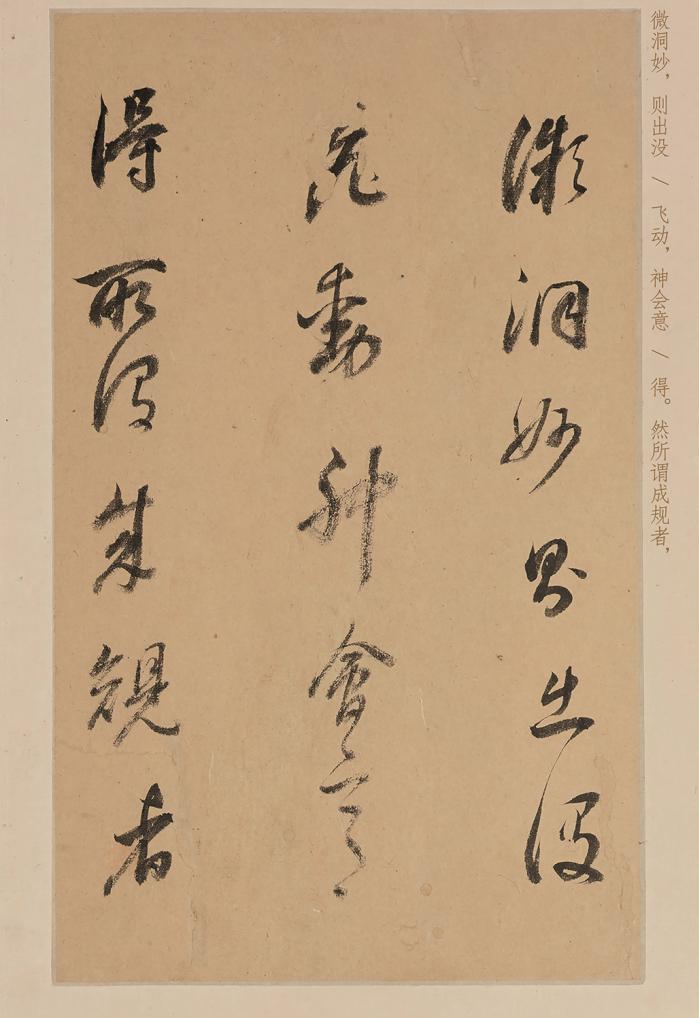 微洞妙，则出没 / 飞动，神会意 / 得。然所谓成规者，
微洞妙則出没
飛動神會意
得所謂成規者